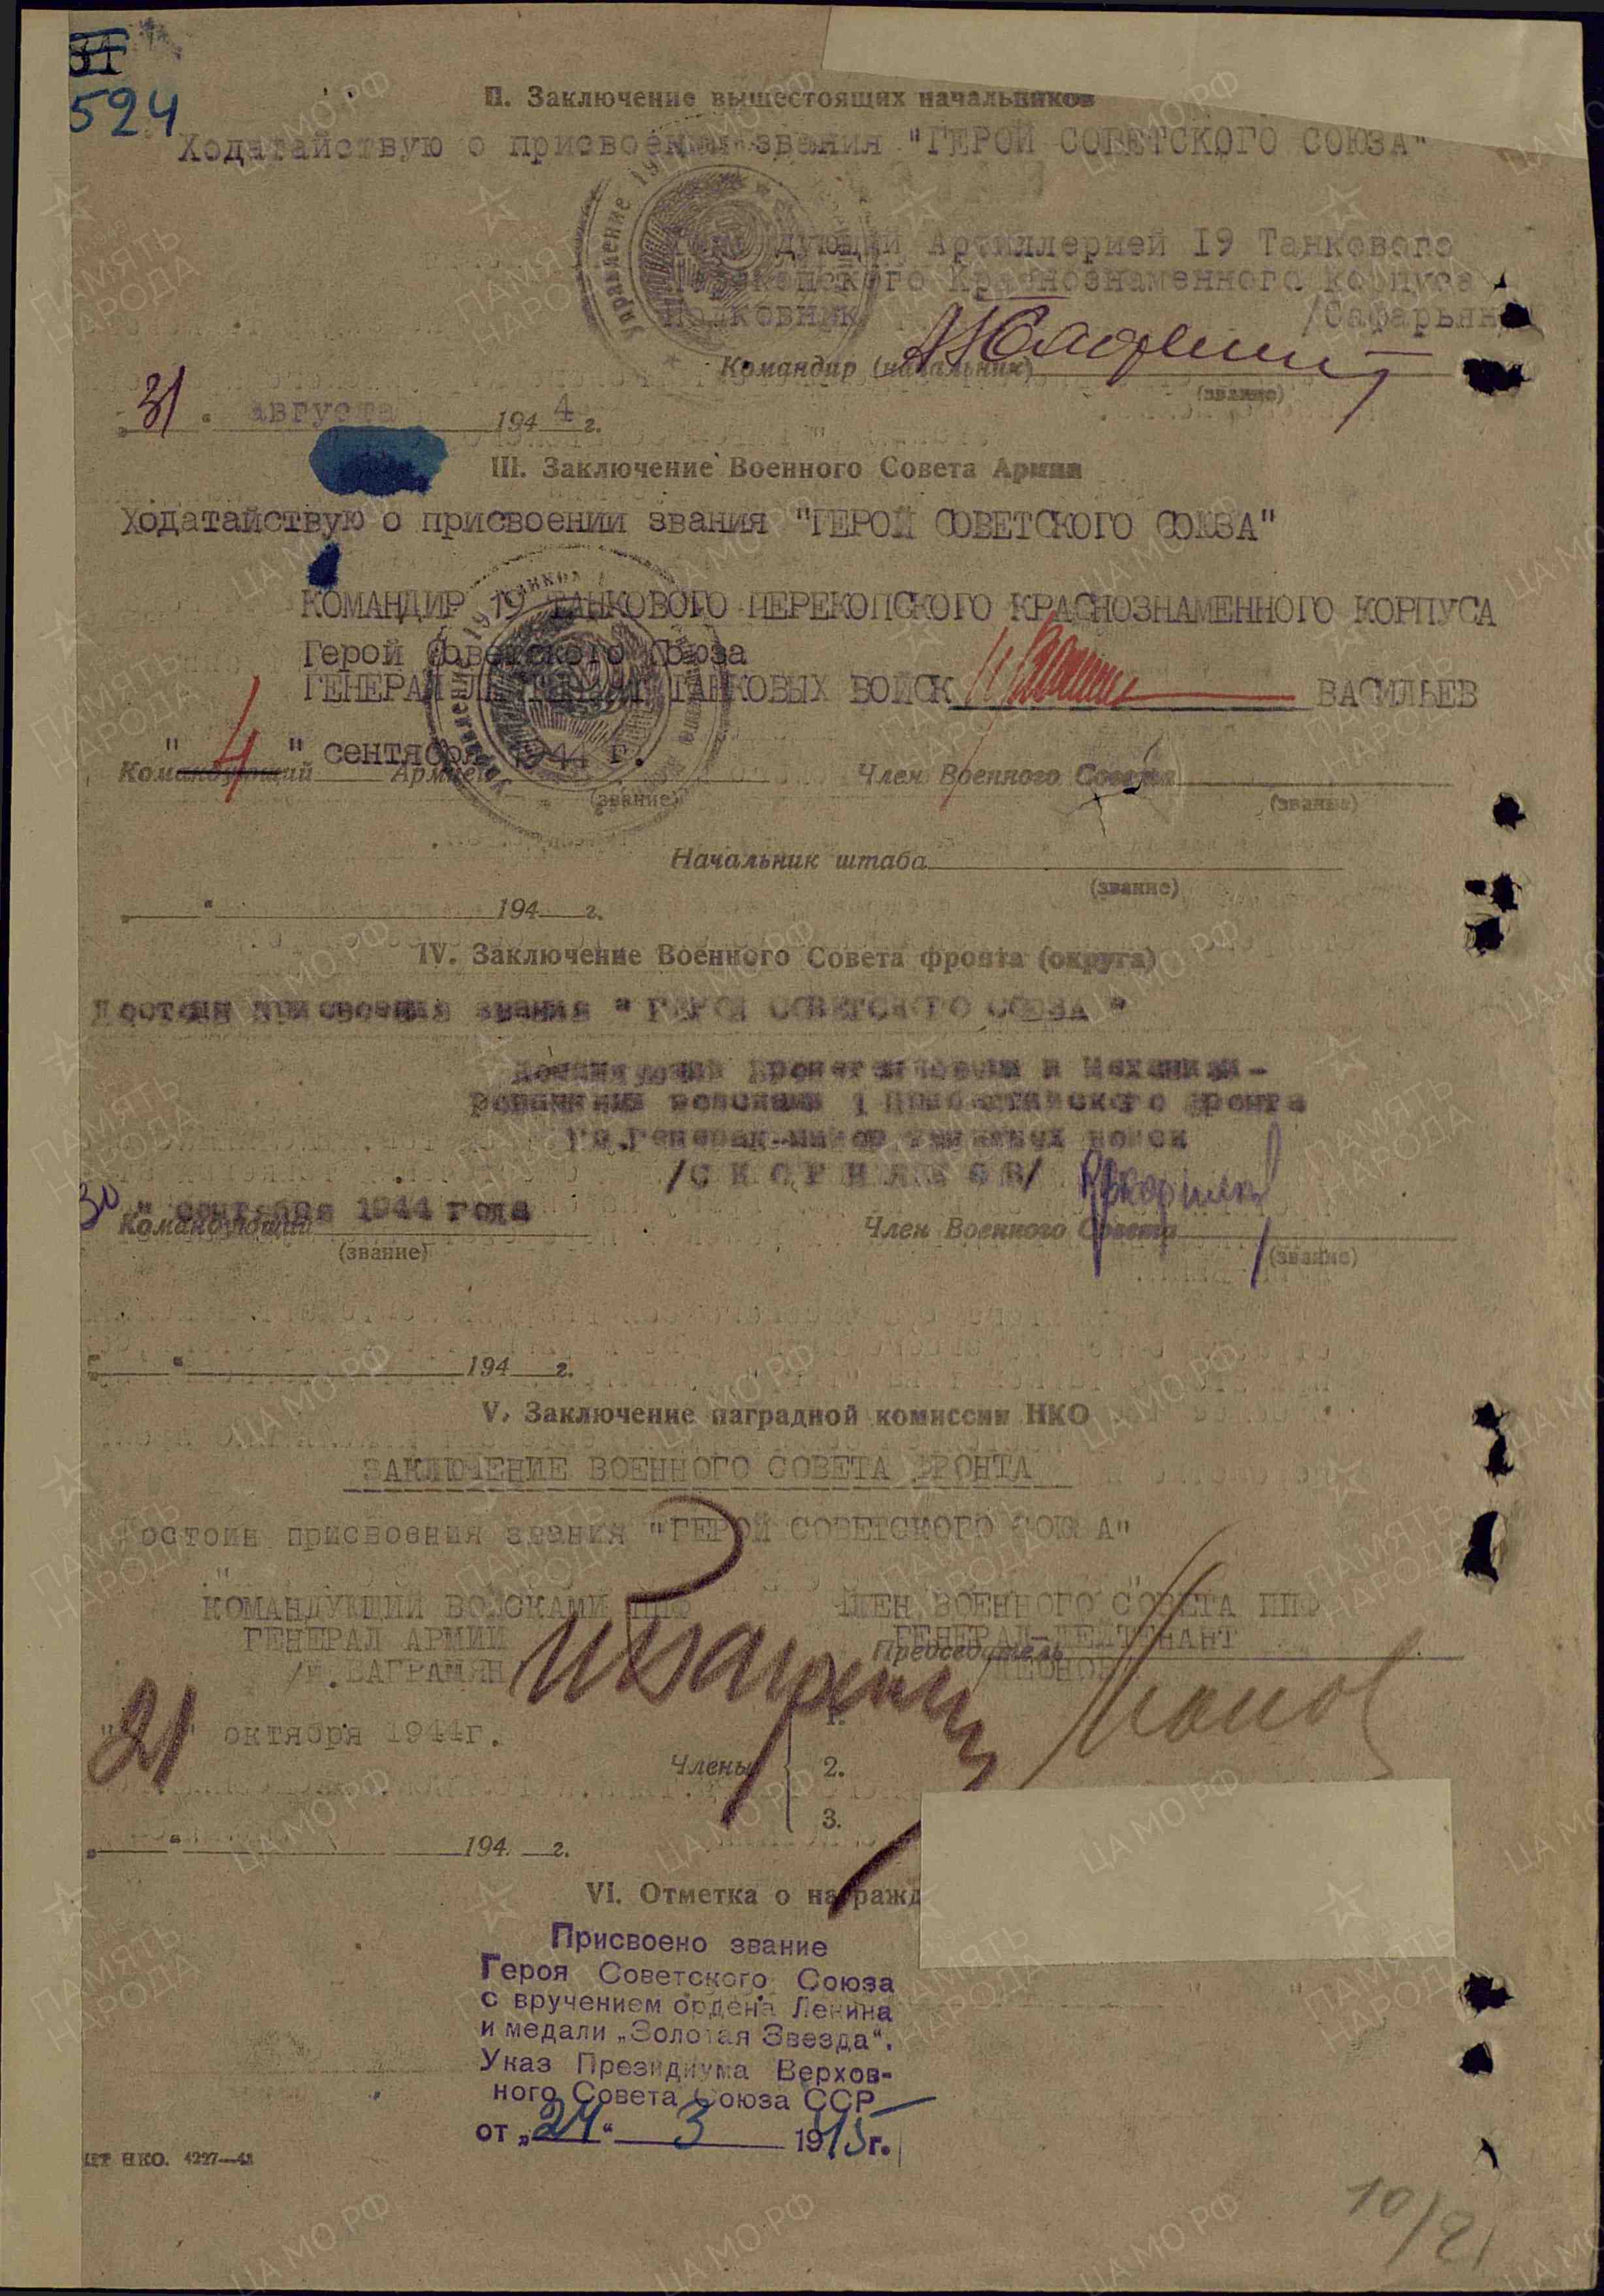 524
II. Заключение вышестоящих начальников
Ходатайствую о присвоении звания "ГЕРОЙ СОВЕТСКОГО СОЮЗА"
Артиллерией 19 Танкового
Краснознаменного корпуса
Полковник /Сафарьян
Командир (начальник)
(звание)
31 " августа 1944 г.
III. Заключение Военного Совета Армии
Ходатайствую о присвоении звания "ГЕРОЙ СОВЕТСКОГО СОЮЗА"
КОМАНДИР 19 ТАНКОВОГО ПЕРЕКОПСКОГО КРАСНОЗНАМЕННОГО КОРПУСА
Герой Советского Союза
ГЕНЕРАЛ ЛЕЙТЕНАНТ ТАНКОВЫХ ВОЙСК ВАСИЛЬЕВ
" 4 " сентября 1944 г.
Командующий Армией Член Военного Совета
(звание) (звание)
Начальник штаба
(звание)
" " 194 г.
IV. Заключение Военного Совета фронта (округа)
Достоин присвоения звания " ГЕРОЯ СОВЕТСКОГО СОЮЗА "
Командующий Бронетанковыми и Механизи-
рованными войсками 1 Прибалтийского фронта
Гв.Генерал-майор танковых войск
/С К О Р Н Я К О В/
30 " сентября 1944 года
Командующий Член Военного Совета
(звание) (звание)
" " 194 г.
V. Заключение наградной комиссии НКО
ЗАКЛЮЧЕНИЕ ВОЕННОГО СОВЕТА ФРОНТА
Достоин присвоения звания "ГЕРОЙ СОВЕТСКОГО СОЮЗА"
КОМАНДУЮЩИЙ ВОЙСКАМИ ППФ ЧЛЕН ВОЕННОГО СОВЕТА ППФ
ГЕНЕРАЛ АРМИИ ГЕНЕРАЛ-ЛЕЙТЕНАНТ
Председатель
/И.БАГРАМЯН ЛЕОНОВ
"21" октября 1944г.
1.
Члены 2.
3.
" " 194 г.
VI. Отметка о награжд
Присвоено звание
Героя Советского Союза
с вручением ордена Ленина
и медали „Золотая Звезда“.
Указ Президиума Верхов-
ного Совета Союза ССР
от „24“ 3 1945 г.
НКО. 4227—43
10/21